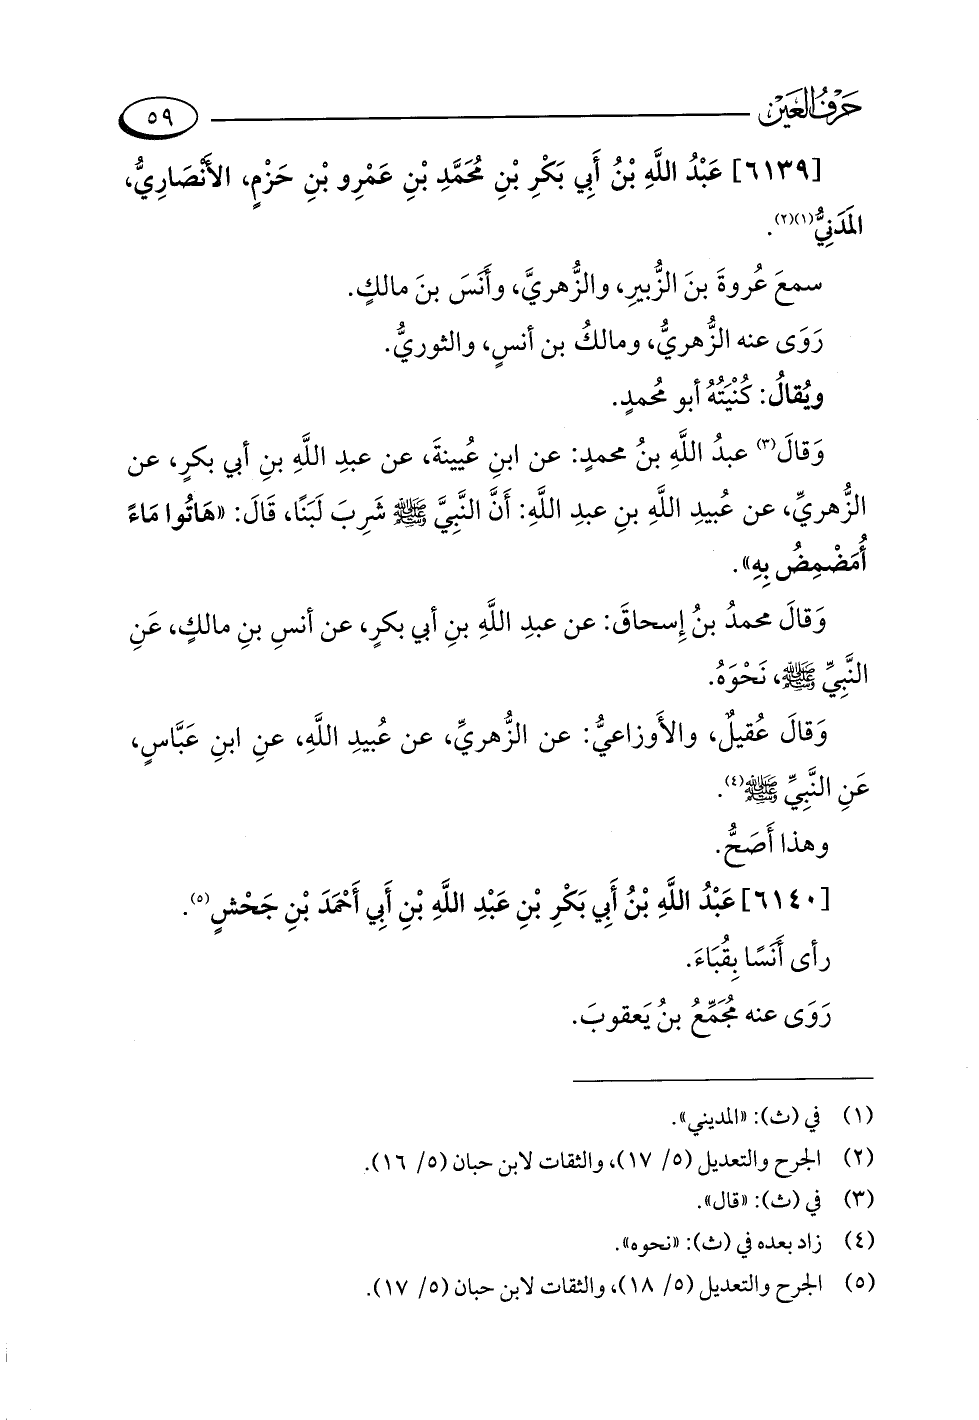 حرف العين
٥٩
[٦١٣٩] عَبْدُ اللَّهِ بْنُ أَبِي بَكْرِ بْنِ مُحَمَّدِ بْنِ عَمْرِو بْنِ حَزْمٍ، الأَنْصَارِيُّ،
المَدَنِيُّ(١)(٢).
سمعَ عُروةَ بنَ الزُّبيرِ، والزُّهريَّ، وأَنَسَ بنَ مالكٍ.
رَوَى عنه الزُّهريُّ، ومالكُ بن أنسٍ، والثوريُّ.
ويُقالُ: كُنْيَتُهُ أبو مُحمدٍ.
وَقالَ(٣) عبدُ اللَّهِ بنُ محمدٍ: عن ابنِ عُيينةَ، عن عبدِ اللَّهِ بنِ أبي بكرٍ، عن
الزُّهريِّ، عن عُبيدِ اللَّهِ بنِ عبدِ اللَّهِ: أَنَّ النَّبِيَّ ﷺ شَرِبَ لَبَنًا، قَالَ: «هَاتُوا مَاءً
أُمَضْمِضُ بِهِ».
وَقالَ محمدُ بنُ إِسحاقَ: عن عبدِ اللَّهِ بنِ أبي بكرٍ، عن أنسِ بنِ مالكٍ، عَنِ
النَّبِيِّ ﷺ، نَحْوَهُ.
وَقالَ عُقيلٌ، والأَوزاعيُّ: عن الزُّهريِّ، عن عُبيدِ اللَّهِ، عنِ ابنِ عَبَّاسٍ،
عَنِ النَّبِيِّ ﷺ(٤).
وهذا أَصَحُّ.
[٦١٤٠] عَبْدُ اللَّهِ بْنُ أَبِي بَكْرِ بْنِ عَبْدِ اللَّهِ بْنِ أَبِي أَحْمَدَ بْنِ جَحْشٍ(٥).
رأى أَنَسًا بِقُبَاءَ.
رَوَى عنه مُجَمِّعُ بنُ يَعقوبَ.
(١) في (ث): «المديني».
(٢) الجرح والتعديل (٥/ ١٧)، والثقات لابن حبان (٥/ ١٦).
(٣) في (ث): «قال».
(٤) زاد بعده في (ث): «نحوه».
(٥) الجرح والتعديل (٥/ ١٨)، والثقات لابن حبان (٥/ ١٧).